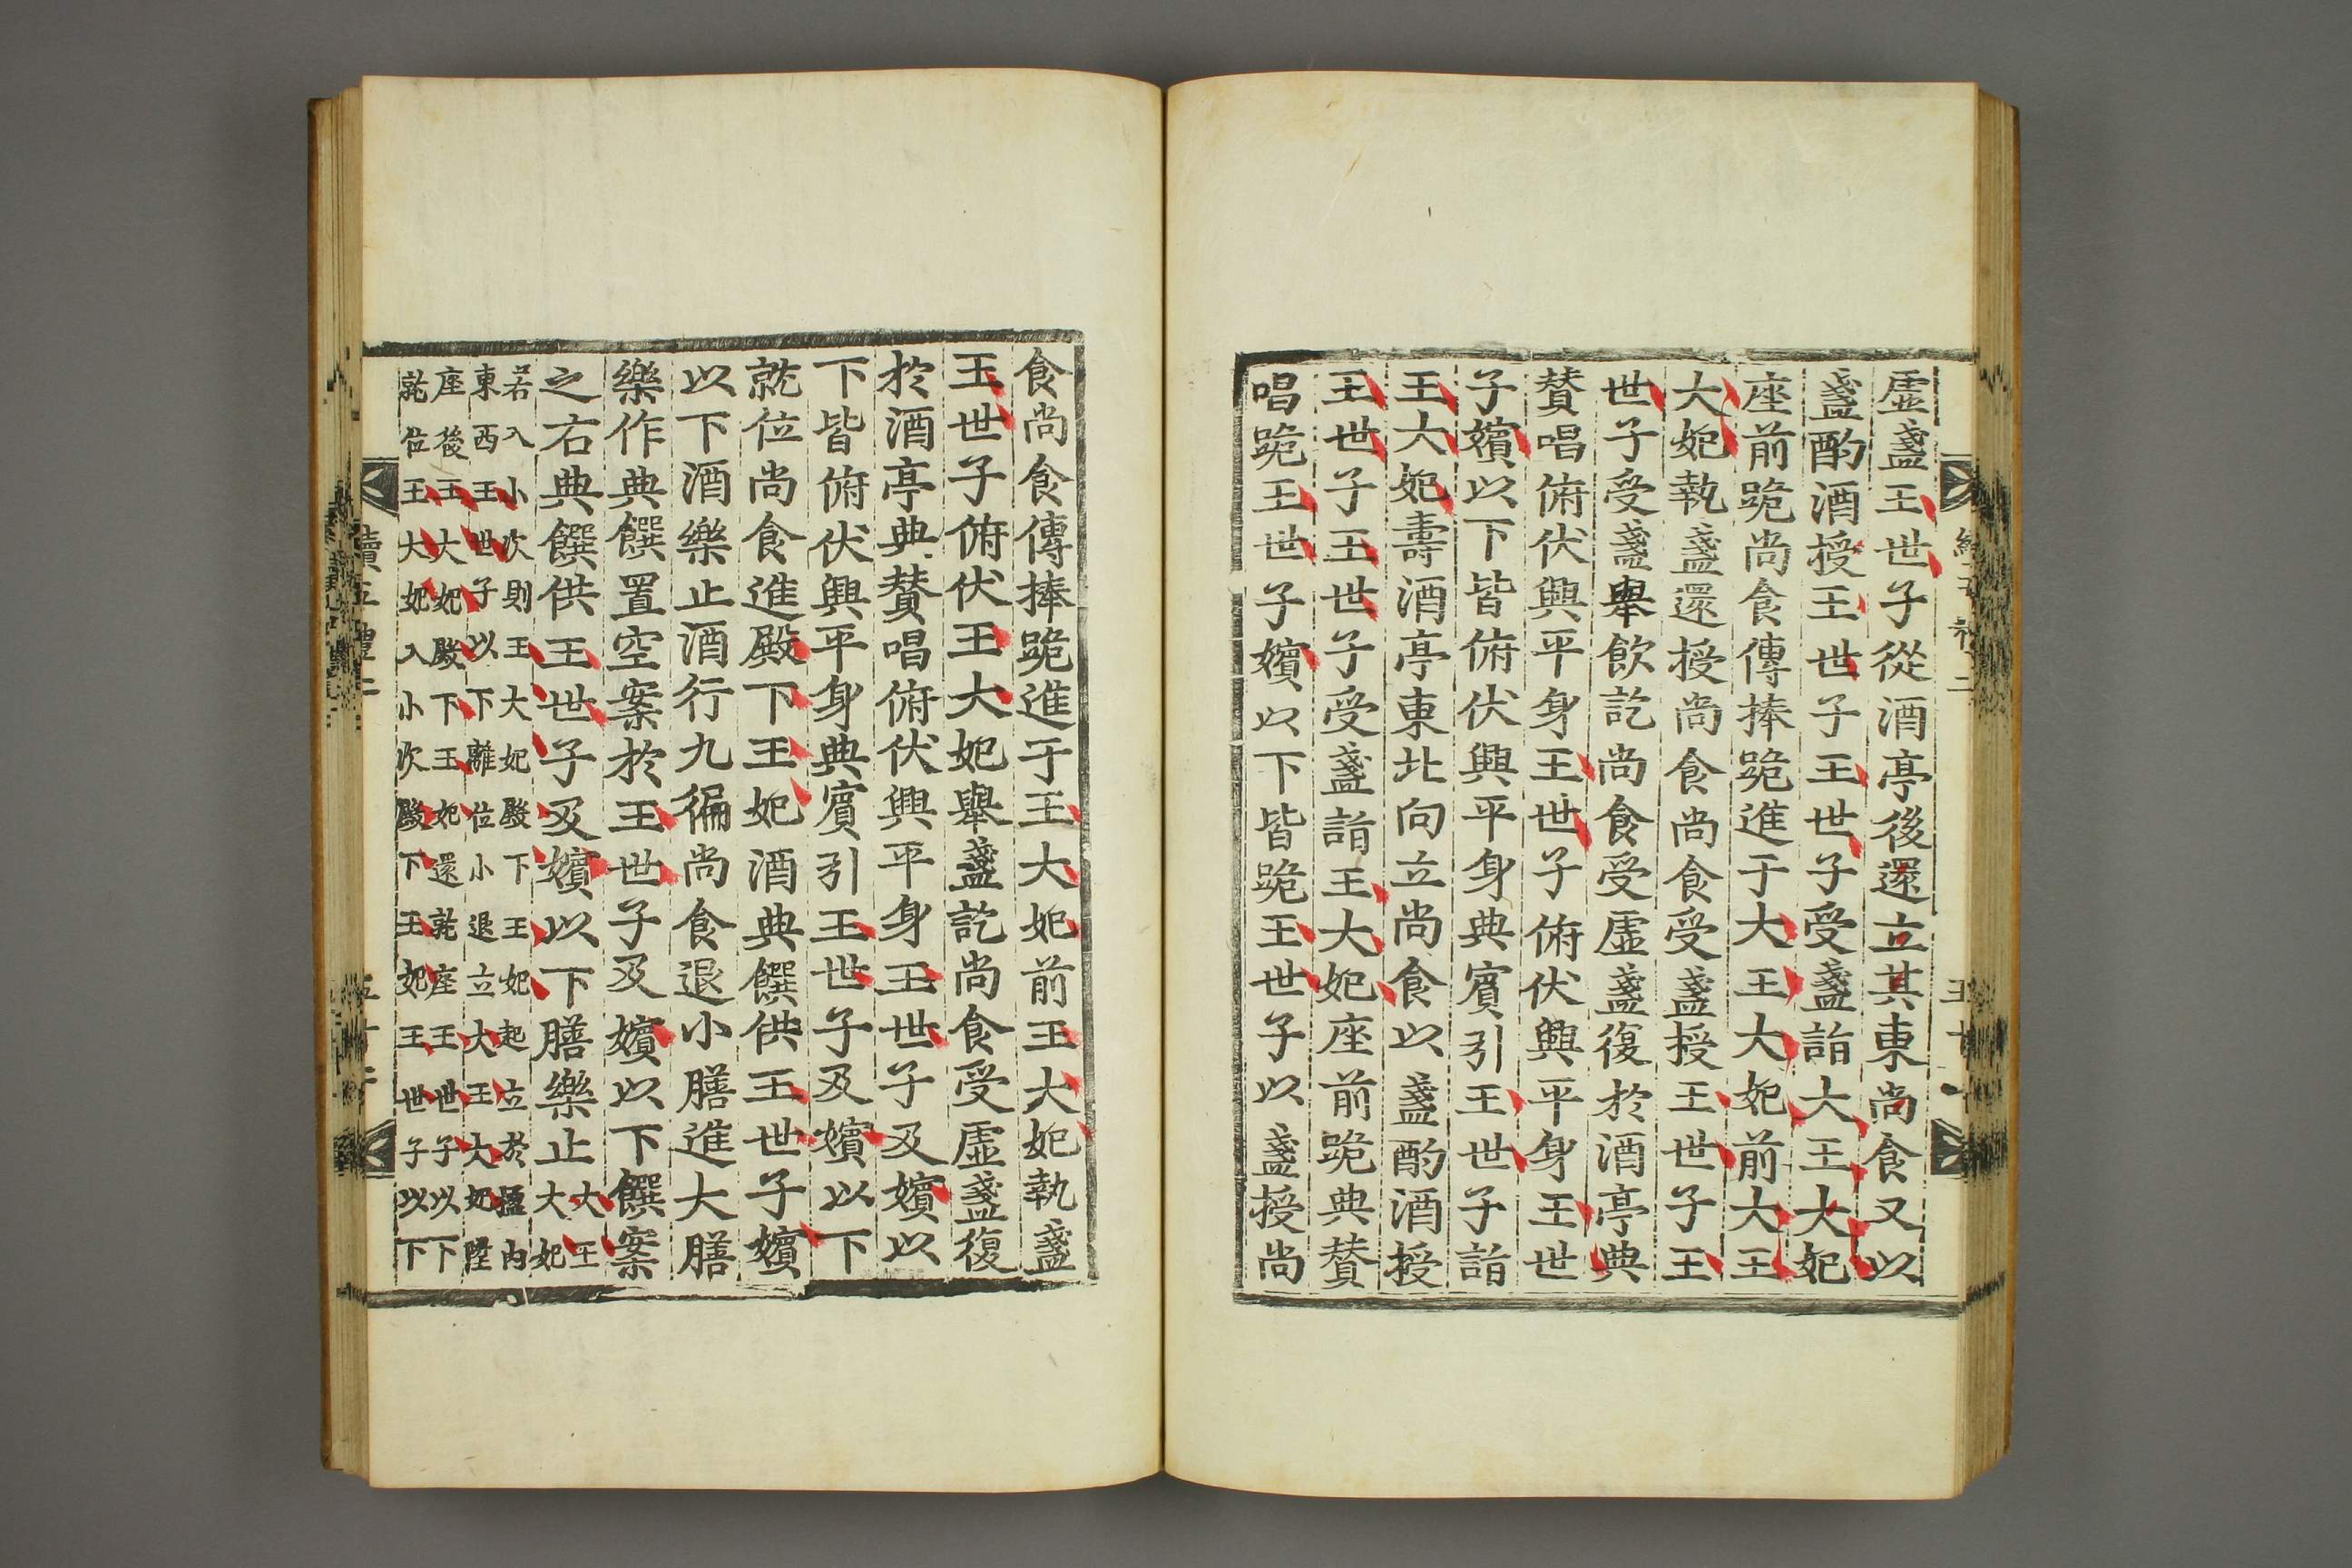 虛盞王世子從酒亭後還立其東尚食又以
盞酌酒授王世子王世子受盞詣大王大妃
座前跪尚食傳捧跪進于大王大妃前大王
大妃執盞還授尚食尚食受盞授王世子王
世子受盞舉飮訖尚食受虛盞復於酒亭典
贊唱俯伏興平身王世子俯伏興平身王世
子嬪以下皆俯伏興平身典賓引王世子詣
王大妃壽酒亭東北向立尚食以盞酌酒授
王世子王世子受盞詣王大妃座前跪典贊
唱跪王世子嬪以下皆跪王世子以盞授尚
食尚食傳捧跪進于王大妃前王大妃執盞
王世子俯伏王大妃舉盞訖尚食受虛盞復
於酒亭典贊唱俯伏興平身王世子及嬪以
下皆俯伏興平身典賓引王世子及嬪以下
就位尚食進殿下王妃酒典饌供王世子嬪
以下酒樂止酒行九徧尚食退小膳進大膳
樂作典饌置空案於王世子及嬪以下饌案
之右典饌供王世子及嬪以下膳樂止大王
大妃
若入小次則王大妃殿下王妃起立於楹內
東西王世子以下離位小退立大王大妃陞
座後王大妃殿下王妃還就座王世子以下
就位王大妃入小次殿下王妃王世子以下
續五禮二